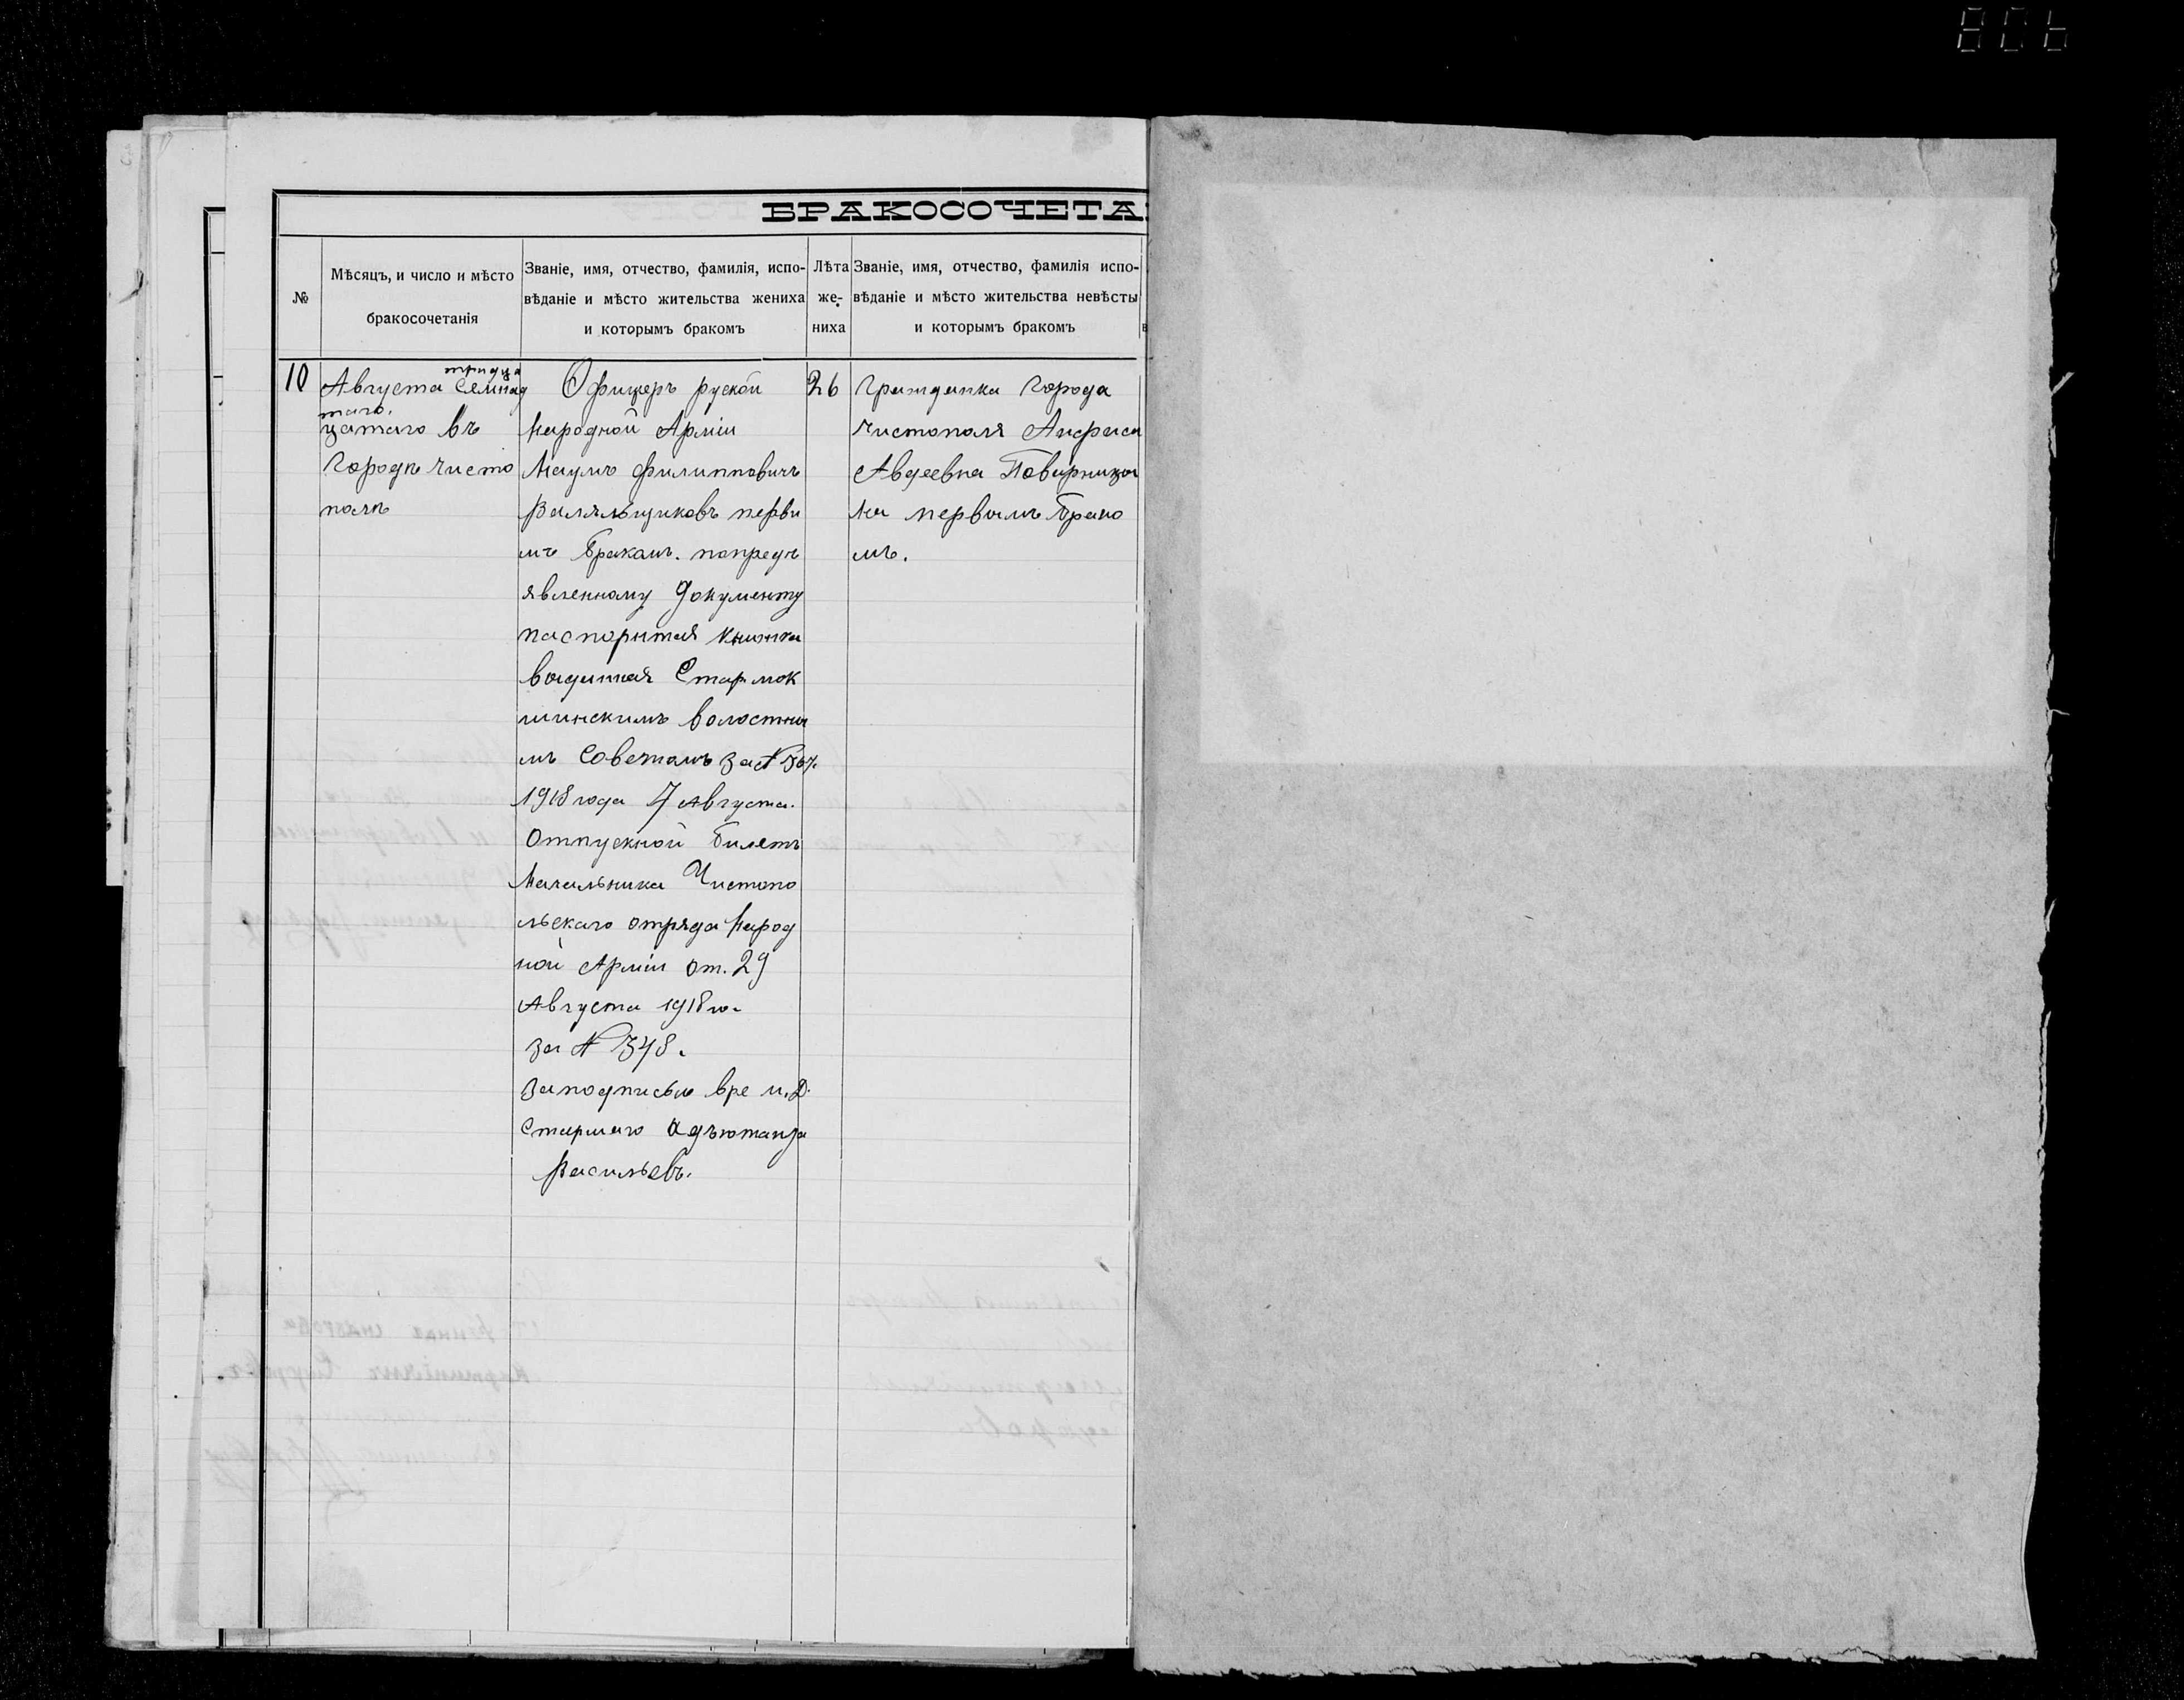 БРАКОСОЧЕТА
№
Мѣсяцъ, и число и мѣсто
бракосочетанія
Званіе, имя, отчество, фамилія, испо-
вѣданіе и мѣсто жительства жениха
и которымъ бракомъ
Лѣта
же-
ниха
Званіе, имя, отчество, фамилія испо-
вѣданіе и мѣсто жительства невѣсты
и которымъ бракомъ
10
тридца
Августа Семнад
таго.
цатаго въ
Городѣ Чисто
полѣ
Офицеръ руской
Народной Арміи
Наумъ Филипповичъ
Валяльщиковъ первы
мъ Бракамъ. попредъ
явленному Документу
паспортная книжка
выданная Стармок
шинскимъ волостны
мъ Советамъ за №
1918 года 7 Августа.
Отпускной билетъ
Начальника Чистопо
льскаго отряда Народ
ной Арміи от. 29
Августа 1918 го.
за № 348.
Заподписью вре и.Д.
Старшаго Адъютанта
Васильевъ.
26
Гражданка Города
Чистополя Анфиса
Авдеевна Поварницы
на первымъ Брако
мъ.